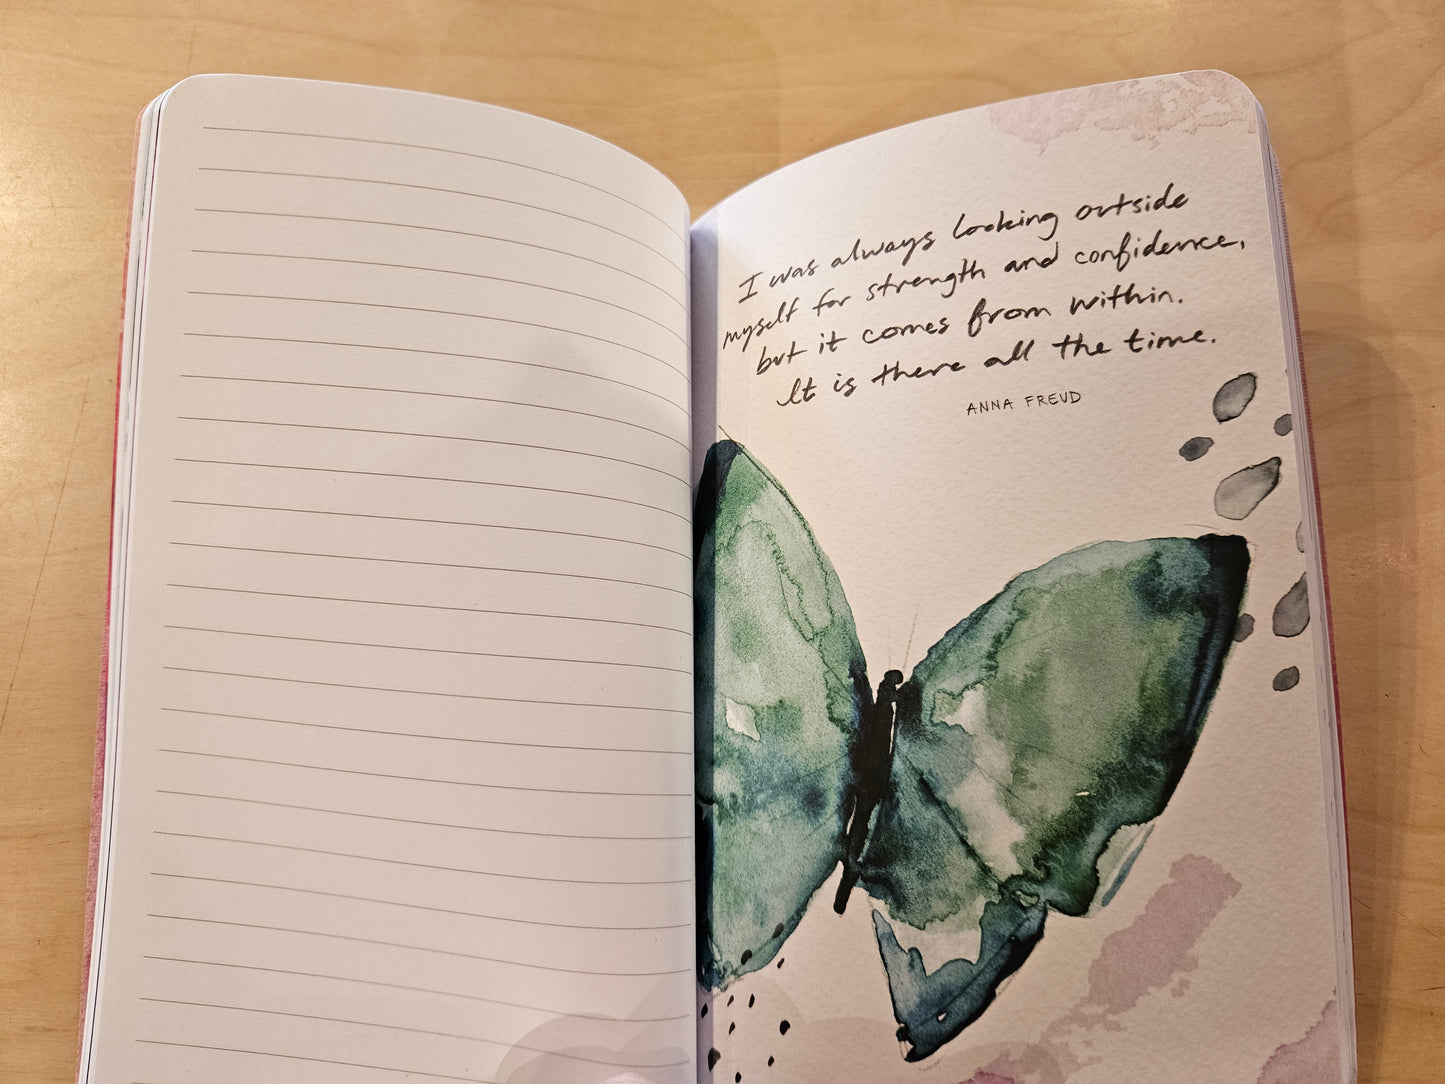 I was always looking outside
myself for strength and confidence,
but it comes from within.
It is there all the time.
ANNA FREUD